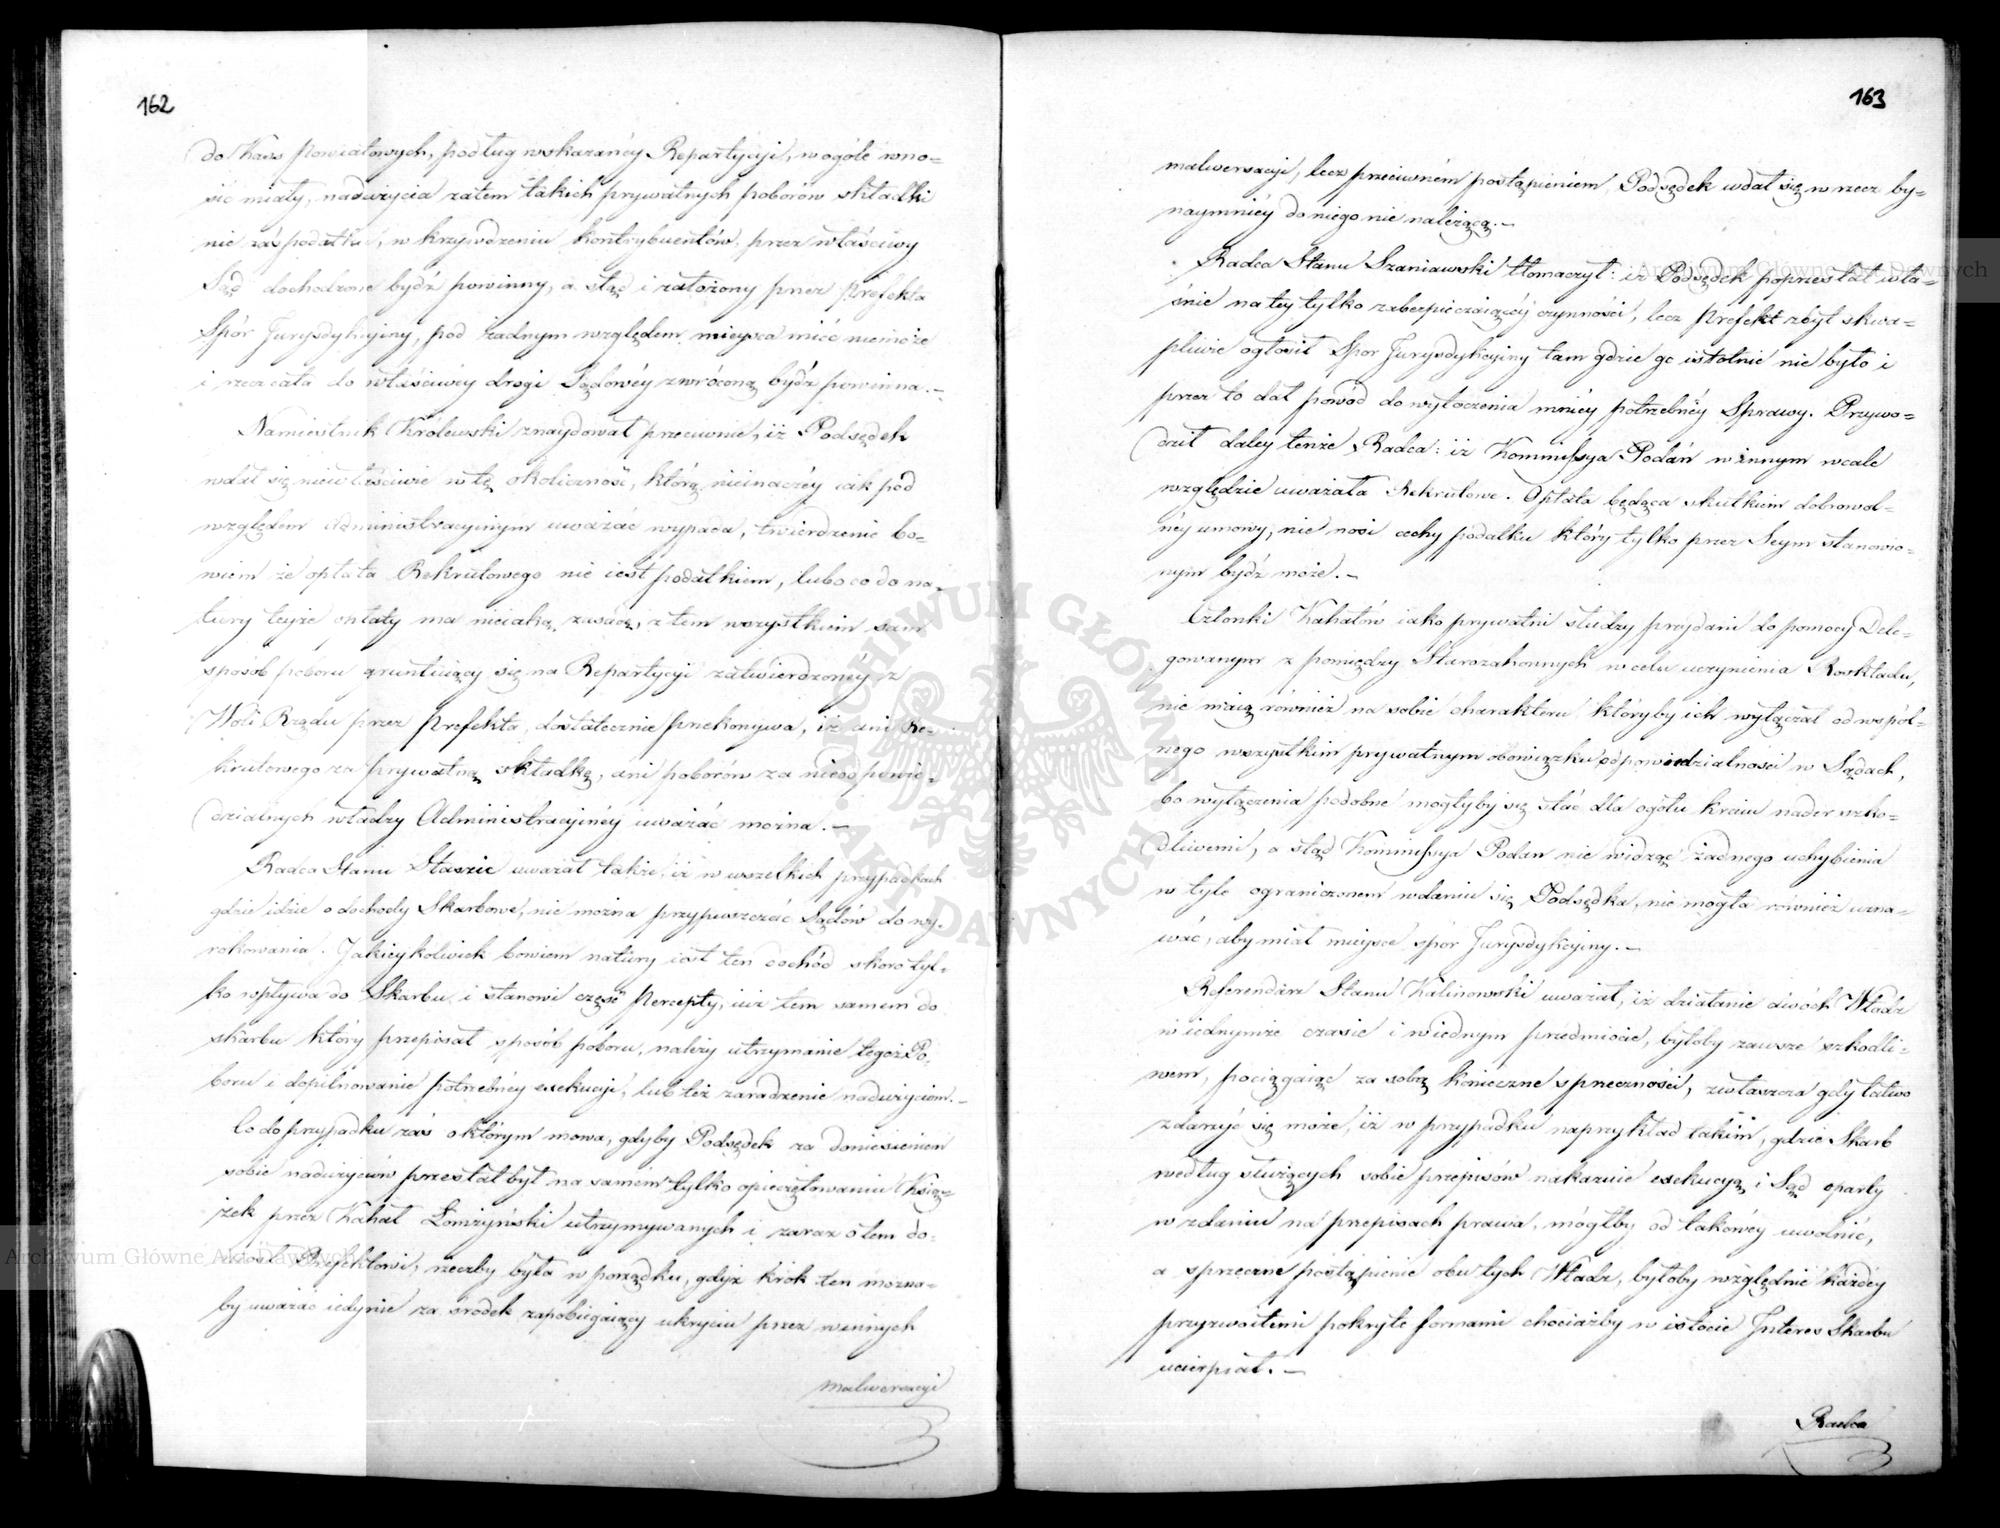 162
do Kass Powiatowych, podług wskazanéy Repartycyi, w ogóle wno-
sić miały, nadużycia zatem takich prywatnych poborów składki
nie zaś podatku, w krzywdzeniu kontrybuentów, przez właściwy
Sąd dochodzone bydź powinny, a stąd i założony przez Prefekta
Spór Jurysdykcyiny, pod żadnym względem mieysca mieć niemoże
i rzecz cała do właściwéy drogi Sądowéy zwróconą bydź powinna. –
Namiestnik Królewski znaydował przeciwnie, iż Podsędek
wdał się niewłaściwie w tę okoliczność, którą nieinaczéy iak pod
względem administracyinym uważać wypada, twierdzenie bo-
wiem że opłata Rekrutowego nie iest podatkiem, lubo co do na-
tury teyże opłaty ma nieiaką zasadę, z tem wszystkiem sam
sposób poboru gruntuiący się na Repartycyi zatwierdzonéy z
Woli Rządu przez Prefekta, dostatecznie przekonywa, iż ani Re-
krutowego za prywatną składkę, ani poborów za nieodpowie-
dzialnych władzy Administracyinéy uważać można. –
Radca Stanu Staszic uważał także, iż w wszelkich przypadkach
gdzie idzie o dochody Skarbowe, nie można przypuszczać Sądów do wy-
rokowania. Jakieykolwiek bowiem natury iest ten dochód skoro tyl-
ko wpływa do Skarbu i stanowi część Percepty, iuż tem samem do
skarbu który przepisał sposób poboru, należy utrzymanie tegoż Po-
boru i dopilnowanie potrzebnéy exekucyi, lub też zaradzenie nadużyciom. –
Co do przypadku zaś o którym mowa, gdyby Podsędek za doniesieniem
sobie nadużyciów przestał był na samém tylko opieczętowaniu Ksią-
żek przez Kahał Łomżyński utrzymywanych i zaraz o tem do-
niósł Prefektowi, rzeczby była w porządku, gdyż krok ten można-
by uważać iedynie za środek zapobiegaiący ukryciu przez winnych
malwersacyi
163
malwersacyi, lecz przeciwném postąpieniem, Podsędek wdał się w rzecz by-
naymniéy do niego nie należącą. –
Radca Stanu Szaniawski tłomaczył: iż Podsędek poprzestał wła-
śnie na tey tylko zabezpieczaiącéy czynności, lecz Prefekt zbyt skwa-
pliwie ogłosił Spor Jurysdykcyiny tam gdzie go istotnie nie było i
przez to dał powód do wytoczenia mniéy potrzebnéy Sprawy. Przywo-
dził daléy tenże Radca: iż Kommissya Podań w innym wcale
względzie uważała Rekrutowe. Opłata będąca skutkiem dobrowol-
néy umowy, nie nosi cechy podatku który tylko przez Seym stanowio-
nym bydź może. –
Członki Kahałów iako prywatni słudzy przydani do pomocy Dele-
gowanym z pomiędzy Starozakonnych w celu uczynienia Rozkładu,
nie maią również na sobie charakteru, któryby ich wyłączał od wspól-
nego wszystkim prywatnym obowiązku odpowiedzialności w Sądach,
bo wyłączenia podobne mogłyby się stać dla ogółu kraiu nader szko-
dliwemi, a stąd Kommissya Podań nie widząc żadnego uchybienia
w tyle ograniczonem wdaniu się Podsędka, nie mogła również uzna-
wać, aby miał mieysce spór Jurysdykcyiny. –
Referendarz Stanu Kalinowski uważał, iż działanie dwóch Władz
w iednymże czasie i w iednym przedmiocie, byłoby zawsze szkodli-
wem, pociągaiąc za sobą konieczne sprzeczności, zwłaszcza gdy łatwo
zdarzyć się może, iż w przypadku naprzykład takim, gdzie Skarb
według służących sobie przepisów nakazuie exekucyą, i Sąd oparty
w zdaniu na przepisach prawa, mógłby od takowéy uwolnić,
a sprzeczne postąpienie obu tych Władz, byłoby względnie każdéy
przyzwoitemi pokryte formami chociażby w istocie Interes Skarbu
ucierpiał. –
Radca
Archiwum Główne Akt Dawnych
Archiwum Główne Akt Dawnych
ARCHIWUM GŁÓWNE AKT DAWNYCH